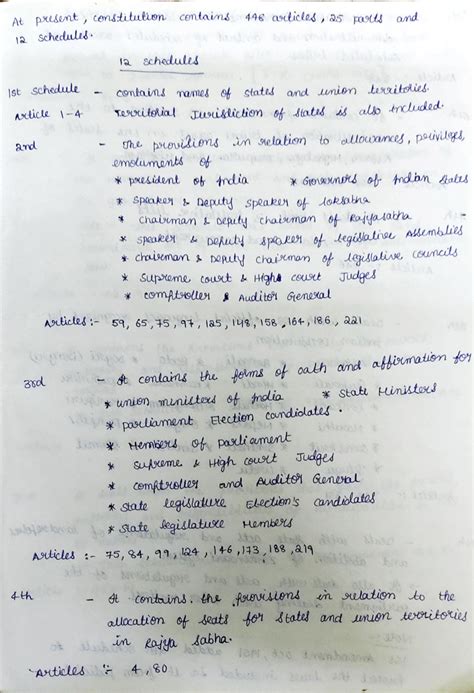 At present, constitution contains 446 articles, 25 parts and
12 schedules.
12 schedules
1st schedule - contains names of states and union territories.
Article 1-4 - Territorial Jurisdiction of states is also included.
2nd - The provisions in relation to allowances, privileges
emoluments of
* president of India * Governors of Indian states
* speaker & Deputy speaker of loksabha
* chairman & Deputy chairman of Rajyasabha
* speaker & Deputy speaker of legislative Assemblies
* chairman & Deputy chairman of legislative councils
* Supreme court & High court Judges
* comptroller & Auditor General
Articles :- 59, 65, 75, 97, 125, 148, 158, 164, 186, 221
3rd - It contains the forms of oath and affirmation for
* union ministers of India * State Ministers
* parliament Election candidates.
* Members of Parliament
* Supreme & High court Judges
* comptroller and Auditor General
* state legislature Election's candidates
* state legislature Members
Articles :- 75, 84, 99, 124, 146, 173, 188, 219
4th - It contains the provisions in relation to the
allocation of seats for states and union territories
in Rajya Sabha.
Articles :- 4, 80